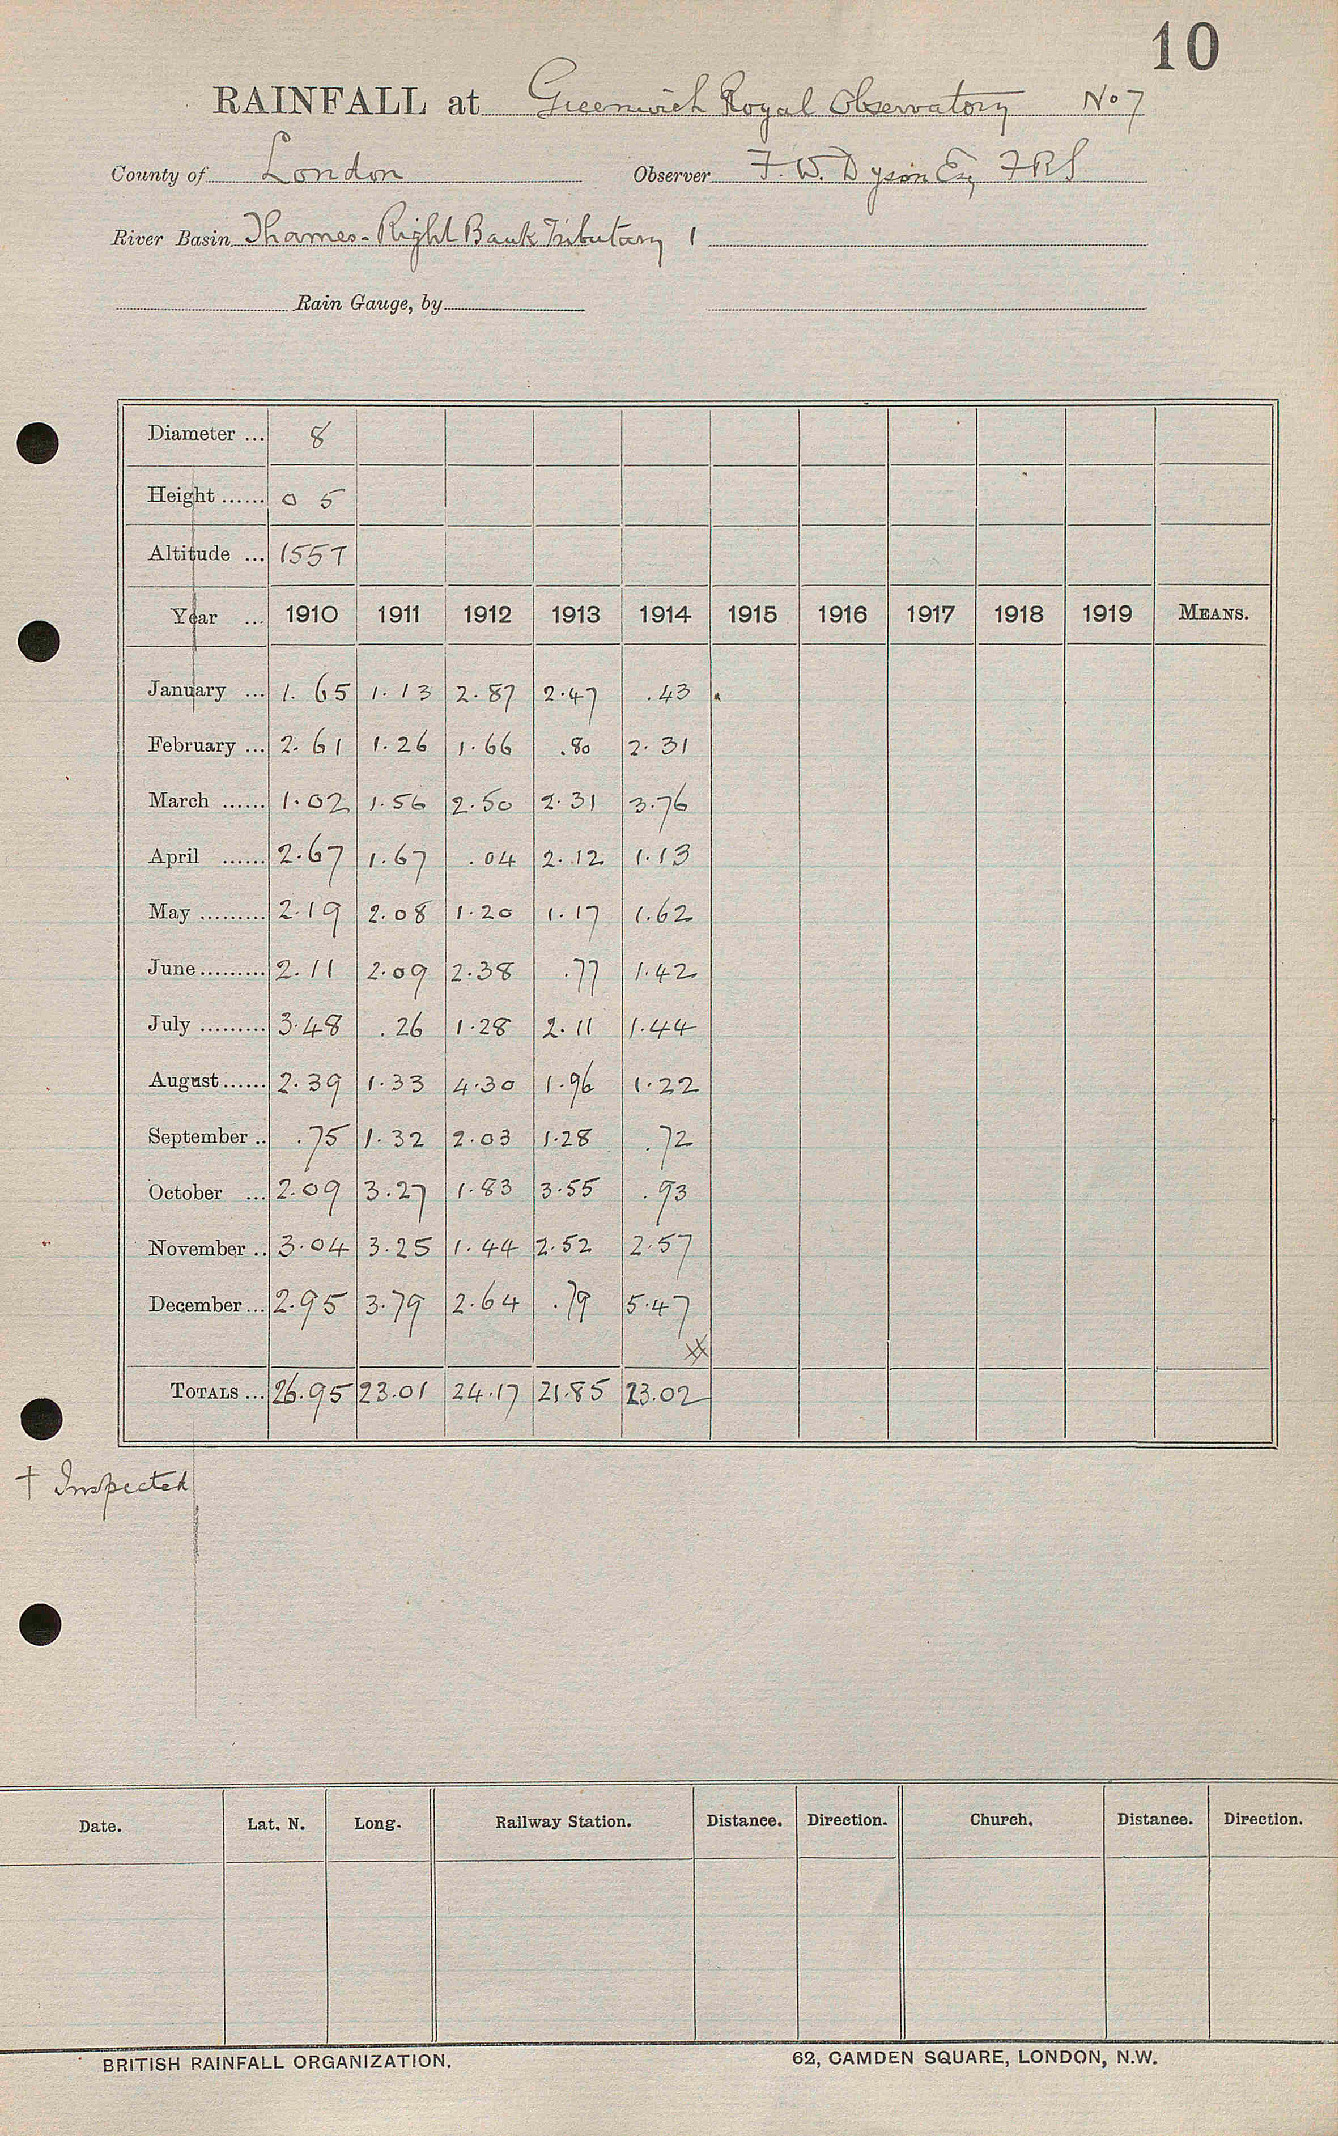 10
RAINFALL at Greenwich Royal Observatory No 7
County of London Observer F. W. Dyson Esq FRS
River Basin Thames - Right Bank Tributary 1
Rain Gauge, by
Diameter ... 8
Height ...... 0 5
Altitude ... 155T
Year ... 1910 1911 1912 1913 1914 1915 1916 1917 1918 1919 MEANS.
January ... 1.65 1.13 2.87 2.47 .43
February ... 2.61 1.26 1.66 .80 2.31
March ...... 1.02 1.56 2.50 2.31 3.76
April ...... 2.67 1.67 .04 2.12 1.13
May ......... 2.19 2.08 1.20 1.17 1.62
June ......... 2.11 2.09 2.38 .77 1.42
July ......... 3.48 .26 1.28 2.11 1.44
August ...... 2.39 1.33 4.30 1.96 1.22
September .. .75 1.32 2.03 1.28 .72
October ... 2.09 3.27 1.83 3.55 .93
November .. 3.04 3.25 1.44 2.52 2.57
December ... 2.95 3.79 2.64 .79 5.47
TOTALS ... 26.95 23.01 24.17 21.85 23.02
† Inspected
Date. Lat. N. Long. Railway Station. Distance. Direction. Church. Distance. Direction.
BRITISH RAINFALL ORGANIZATION. 62, CAMDEN SQUARE, LONDON, N.W.